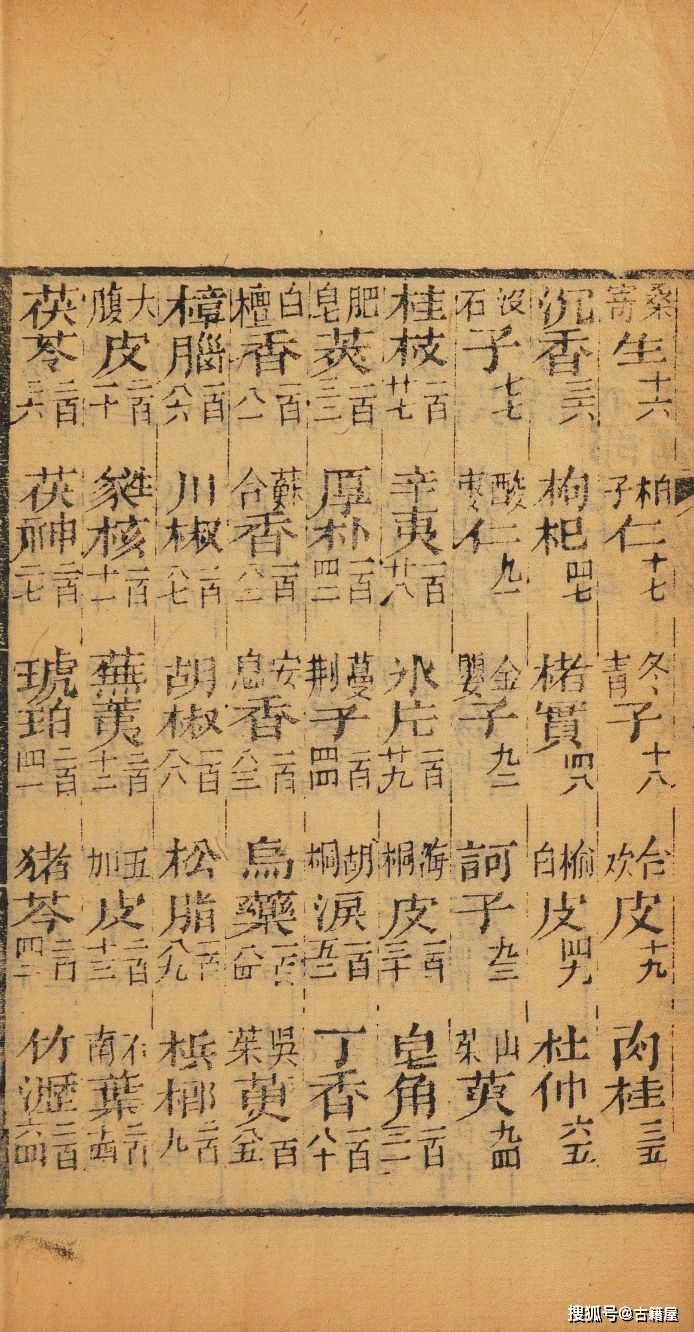 桑寄生十六 柏子仁十七 冬青子十八 合歡皮十九 肉桂三五
沉香三六 枸杞四七 楮實四八 榆白皮四九 杜仲六五
沒石子七七 酸棗仁九一 金嬰子九二 訶子九三 山茱萸九四
桂枝一百廿七 辛夷一百廿八 氷片一百廿九 海桐皮一百三十 皂角一百三一
肥皂莢一百三三 厚朴一百四二 蔓荆子一百四四 胡桐淚一百五二 丁香一百八十
白檀香一百八一 蘇合香一百八二 安息香一百八三 烏藥一百八四 吳茱萸一百八五
樟腦一百八六 川椒一百八七 胡椒一百八八 松脂一百八九 檳榔二百九
大腹皮二百一十 生㮏核二百十一 蕪荑二百十二 五加皮二百十三 南葉二百十四
茯苓二百三六 茯神二百三七 琥珀二百四一 猪苓二百四二 竹瀝二百六四
搜狐号@古籍屋